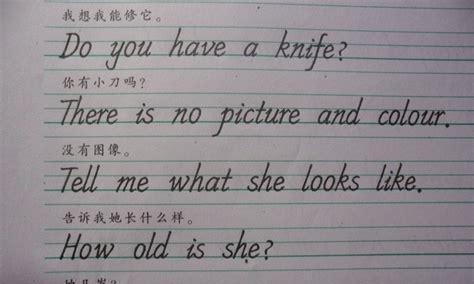 我想我能修它。
Do you have a knife?
你有小刀吗?
There is no picture and colour.
没有图像。
Tell me what she looks like.
告诉我她长什么样。
How old is she?